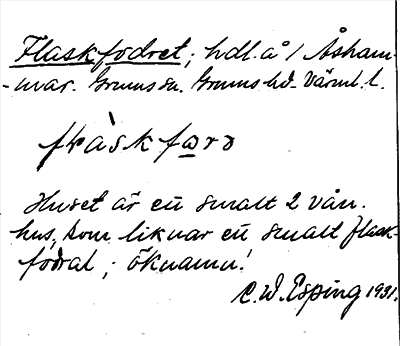 Flaskfodret; hdl. å / Åsham-
-mar. Grums sn. Grums hd. Värml. l.
Huset är ett smalt 2 vån.
hus, som liknar ett smalt flask-
fodral; öknamn!
C.W. Esping 1931.